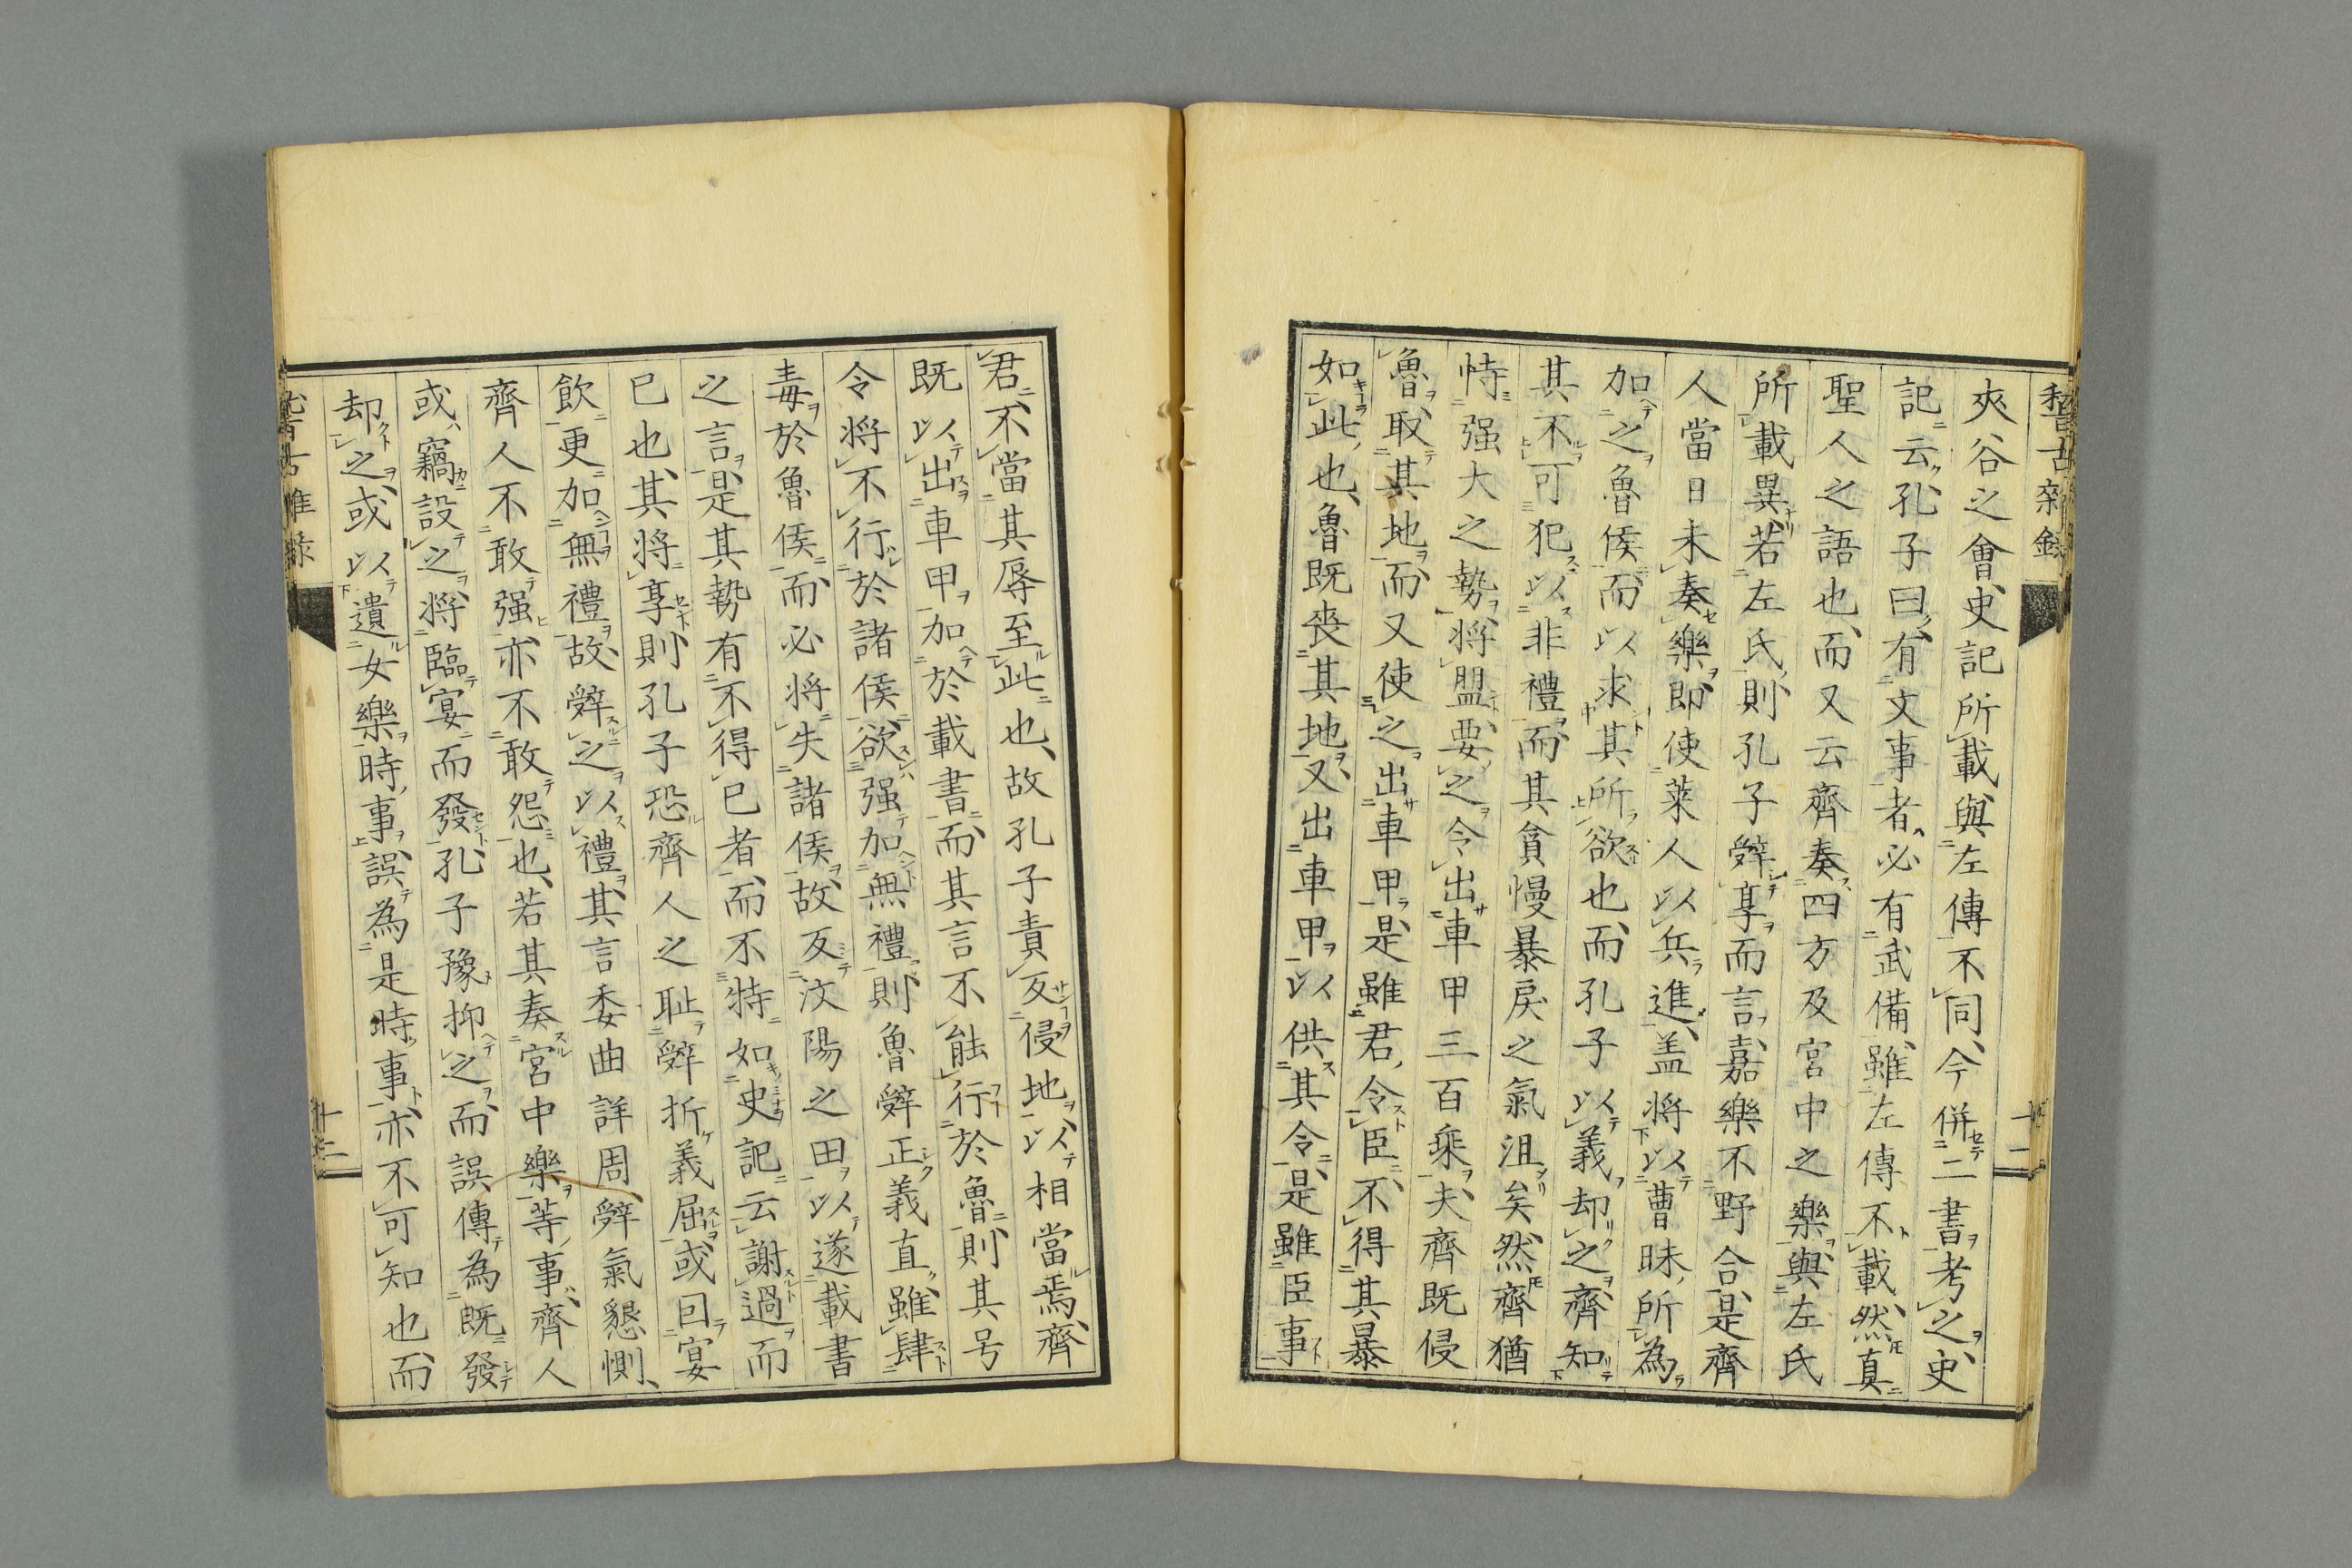 稽古雜錄
十二
夾谷之會、史記所載、與左傳不同、今併二書考之、史
記云、孔子曰、有文事者、必有武備、雖左傳不載、然真
聖人之語也、而又云齊奏四方及宮中之樂、與左氏
所載異、若左氏則孔子辤享而言、嘉樂不野合、是齊
人當日未奏樂、即使萊人以兵進、盖将以曹昧所為
加之魯侯、而以求其所欲也、而孔子以義却之、齊知
其不可犯以非禮、而其貪慢暴戾之氣沮矣、然齊猶
恃强大之勢、将盟要之、令出車甲三百乗、夫齊既侵
魯取其地、而又使之出車甲、是雖君令臣、不得其暴
如此也、魯既喪其地、又出車甲以供其令、是雖臣事
君、不當其辱至此也、故孔子責反侵地、以相當焉、齊
既以出車甲加於載書、而其言不能行於魯、則其号
令将不行於諸侯、欲强加無禮、則魯辤正義直、雖肆
毒於魯侯、而必将失諸侯、故反汶陽之田、以遂載書
之言、是其勢有不得已者、而不特如史記云謝過而
已也、其将享、則孔子恐齊人之耻辤折義屈、或囙宴
飲更加無禮、故辤之以禮、其言委曲詳周、辤氣懇惻、
齊人不敢强、亦不敢怨也、若其奏宮中樂等事、齊人
或竊設之、将臨宴而發、孔子豫抑之、而誤傳為既發
却之、或以遺女樂時事、誤為是時事、亦不可知也、而